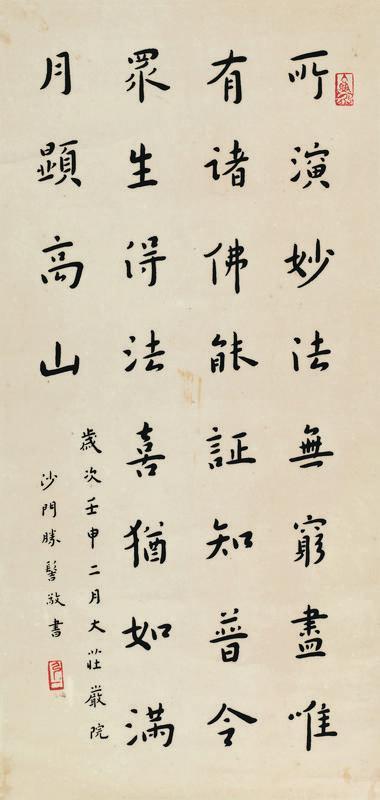 所演妙法無窮盡唯
有諸佛能証知普令
眾生得法喜猶如滿
月顯高山
歲次壬申二月大莊嚴院
沙門勝髻敬書